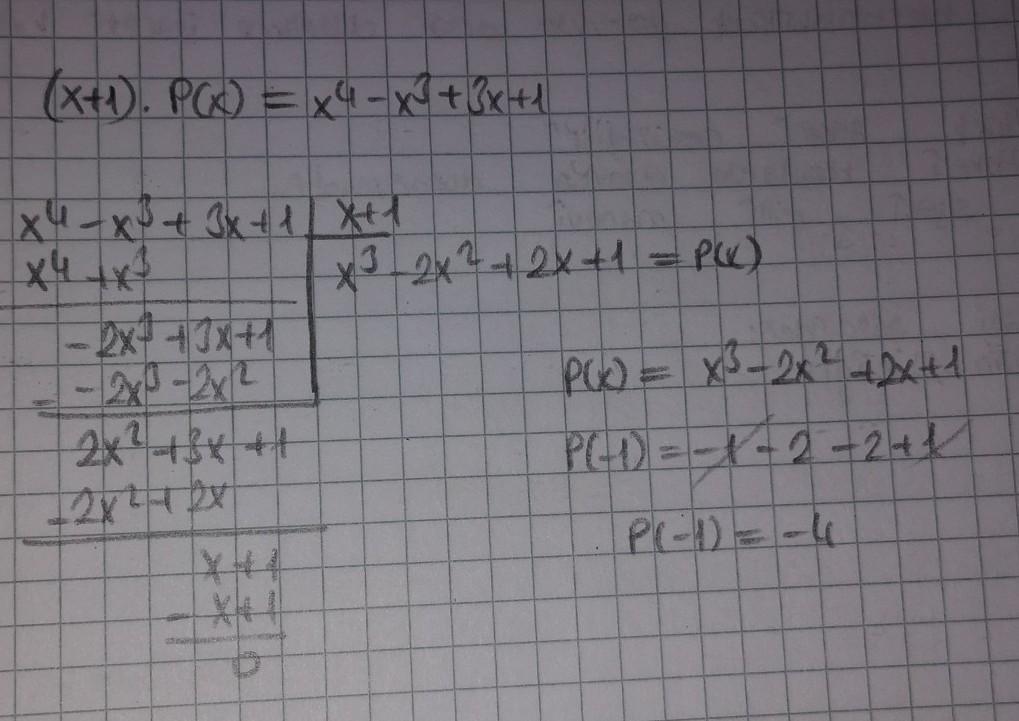 (x+1). P(x) = x⁴ - x³ + 3x + 1
x⁴ - x³ + 3x + 1 | x+1
x⁴ + x³
x³ - 2x² + 2x + 1 = P(x)
- 2x³ + 3x + 1
- - 2x³ - 2x²
2x² + 3x + 1
- 2x² + 2x
x + 1
- x + 1
0
P(x) = x³ - 2x² + 2x + 1
P(-1) = -1 - 2 - 2 + 1
P(-1) = -4